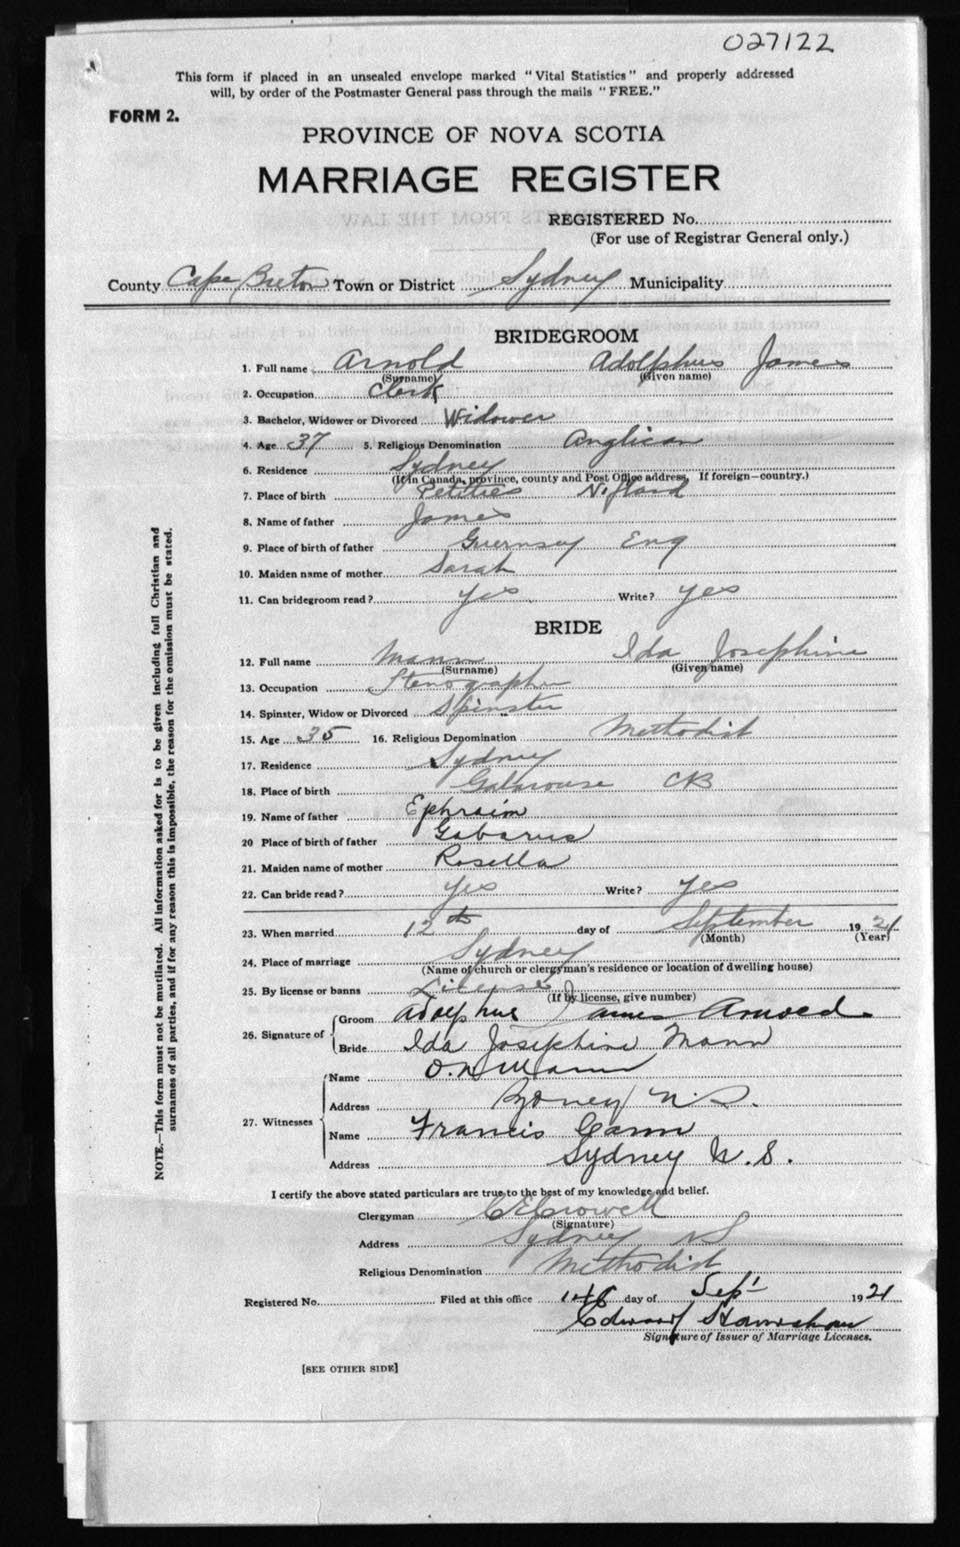 027122
This form if placed in an unsealed envelope marked "Vital Statistics" and properly addressed
will, by order of the Postmaster General pass through the mails "FREE."
FORM 2.
PROVINCE OF NOVA SCOTIA
MARRIAGE REGISTER
REGISTERED No.
(For use of Registrar General only.)
County Cape Breton Town or District Sydney Municipality
BRIDEGROOM
1. Full name Arnold Adolphus James
(Surname) (Given name)
2. Occupation Clerk
3. Bachelor, Widower or Divorced Widower
4. Age 37 5. Religious Denomination Anglican
6. Residence Sydney
(If in Canada, province, county and Post Office address. If foreign—country.)
7. Place of birth Petities N. fland
8. Name of father James
9. Place of birth of father Guernsey Eng
10. Maiden name of mother Sarah
11. Can bridegroom read? yes Write? yes
BRIDE
12. Full name Mann Ida Josephine
(Surname) (Given name)
13. Occupation Stenographer
14. Spinster, Widow or Divorced Spinster
15. Age 35 16. Religious Denomination Methodist
17. Residence Sydney
18. Place of birth Gabarouse CB
19. Name of father Ephraim
20 Place of birth of father Gabarus
21. Maiden name of mother Rosella
22. Can bride read? yes Write? yes
23. When married 12th day of September 1921
(Month) (Year)
24. Place of marriage Sydney
(Name of church or clergyman's residence or location of dwelling house)
25. By license or banns License
(If by license, give number)
26. Signature of Groom Adolphus James Arnold
Bride Ida Josephine Mann
27. Witnesses Name O. Mann
Address Sydney N.S.
Name Francis Cann
Address Sydney N.S.
I certify the above stated particulars are true to the best of my knowledge and belief.
Clergyman C E Crowell
(Signature)
Address Sydney NS
Religious Denomination Methodist
Registered No. Filed at this office day of Sept 1921
Edward
Signature of Issuer of Marriage Licenses.
[SEE OTHER SIDE]
NOTE.—This form must not be mutilated. All information asked for is to be given including full Christian and
surnames of all parties, and if for any reason this is impossible, the reason for the omission must be stated.